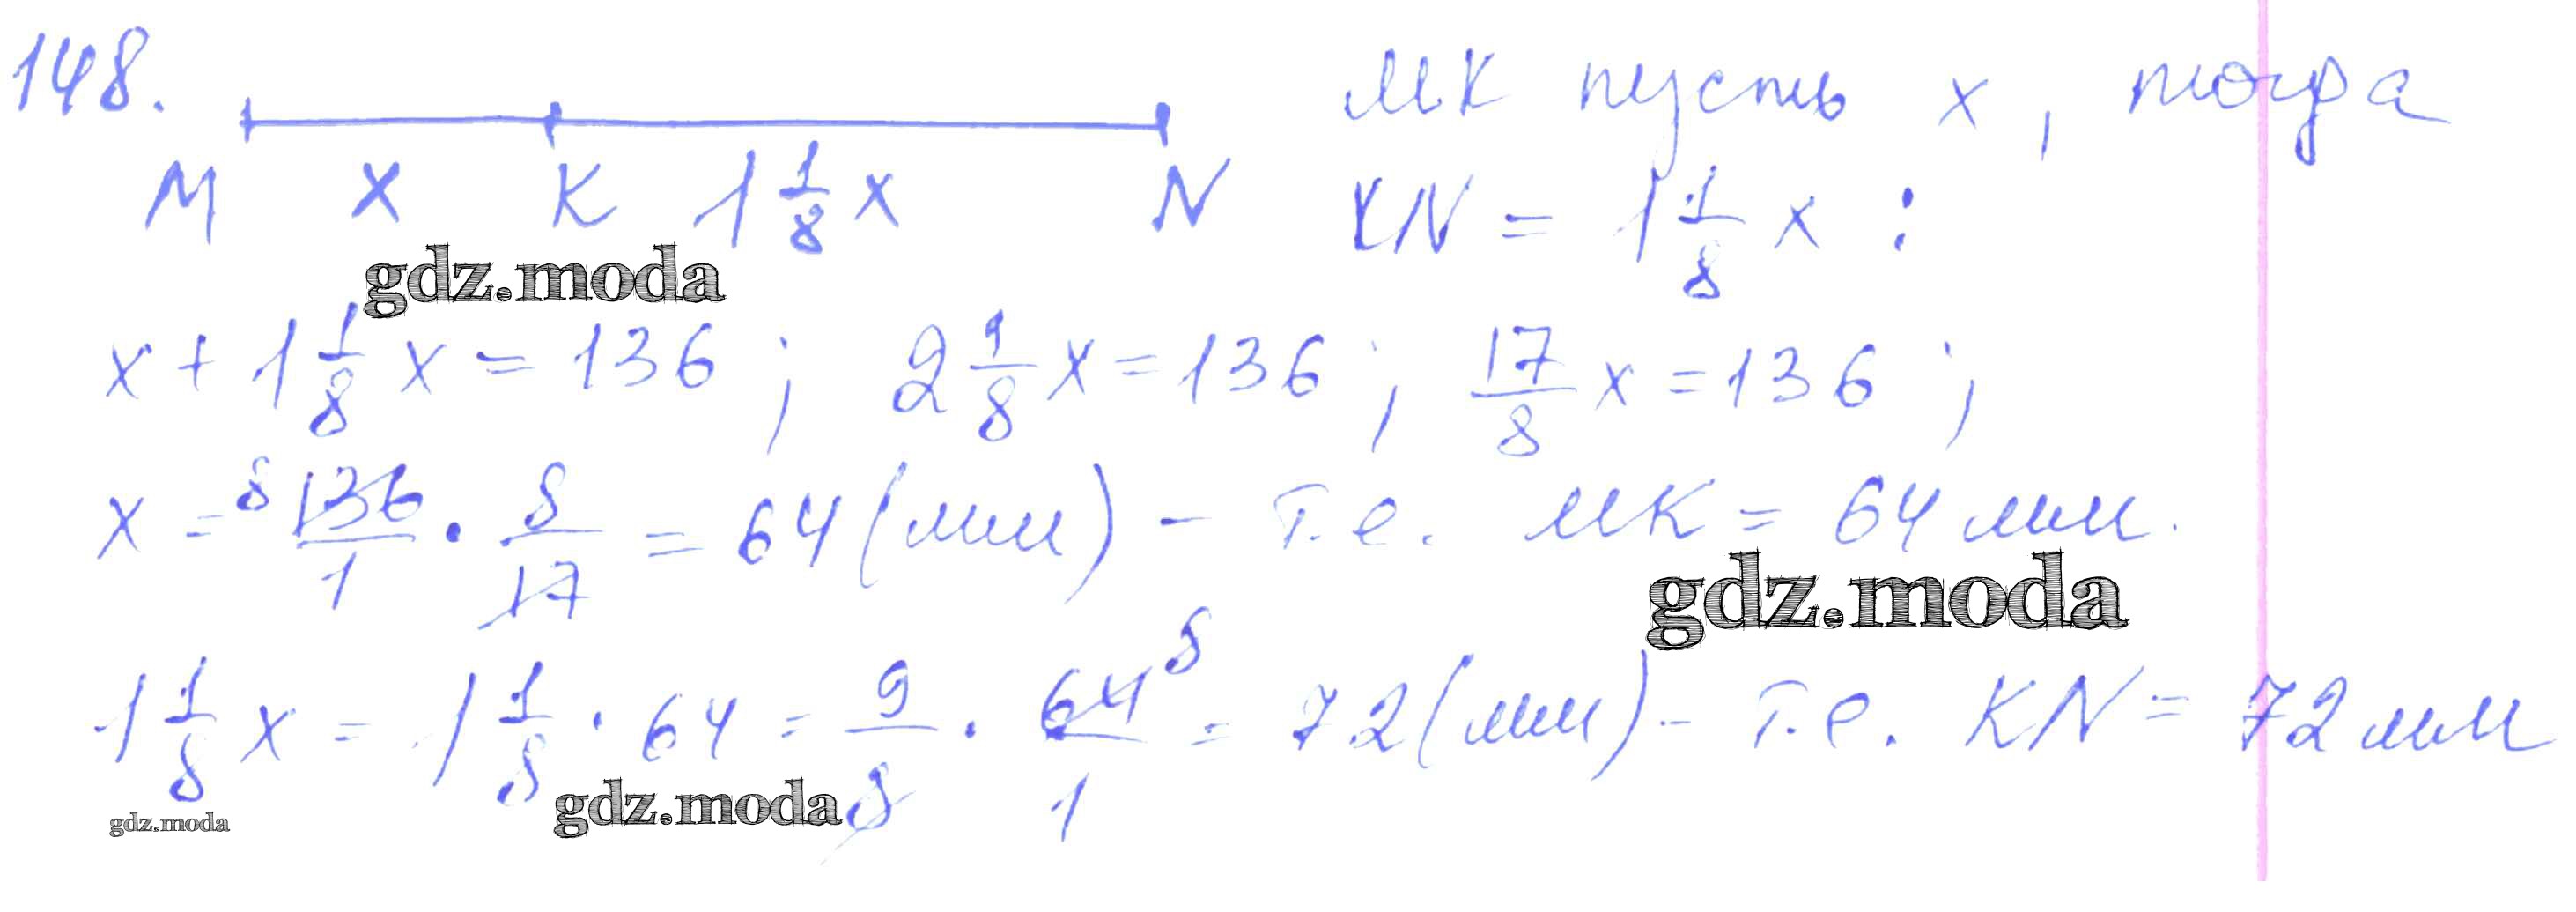 148.
МК пусть x, тогда
M x K 1 1/8 x N
KN = 1 1/8 x :
gdz.moda
x + 1 1/8 x = 136 ; 2 1/8 x = 136 ; 17/8 x = 136 ;
x = ⁸136/1 · 8/17 = 64 (мм) - т.е. МК = 64 мм.
gdz.moda
1 1/8 x = 1 1/8 · 64 = 9/8 · 64⁸/1 = 72 (мм) - т.е. KN = 72 мм
gdz.moda
gdz.moda